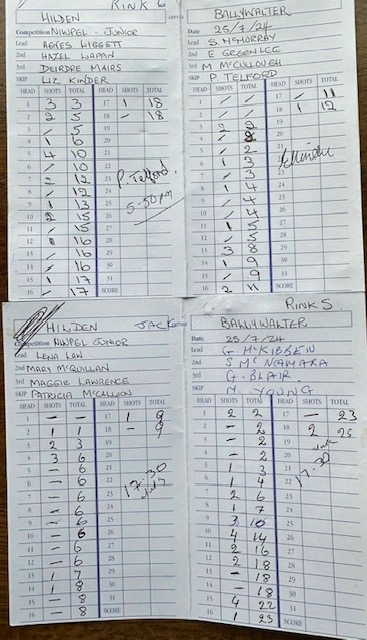 Rink 6
HILDEN
Competition NIWPBL - JUNIOR
Lead AGNES LIGGETT
2nd HAZEL
3rd DEIRDRE MAIRS
SKIP LIZ KINDER
HEAD SHOTS TOTAL HEAD SHOTS TOTAL
1 3 3 17 1 18
2 2 5 18 - 18
3 - 5 19
4 1 6 20
5 4 10 21
6 - 10 22
7 2 12 23
8 - 12 24
9 1 13 25
10 2 15 26
11 - 15 27
12 1 16 28
13 - 16 29
14 - 16 30
15 1 17 31
16 - 17 SCORE
P. Telford
5-50pm
BALLYWALTER
Date 25/7/24
Lead S. McMORRAY
2nd E GREENLEE
3rd M McCULLOUGH
SKIP P TELFORD
HEAD SHOTS TOTAL HEAD SHOTS TOTAL
1 - - 17 - 11
2 - - 18 1 12
3 2 2 19
4 - 2 20
5 - 2 21
6 1 3
7 - 3 23
8 1 4 24
9 - 4 25
10 - 4 26
11 1 5 27
12 - 5 28
13 3 8 29
14 1 9 30
15 - 9 31
16 2 11 SCORE
HILDEN JACK
Competition NIWPBL JUNIOR
Lead LENA LAN
2nd MARY McQUILLAN
3rd MAGGIE LAWRENCE
SKIP PATRICIA McCALLION
HEAD SHOTS TOTAL HEAD SHOTS TOTAL
1 - - 17 1 9
2 1 1 18 - 9
3 2 3 19
4 3 6 20
5 - 6 21
6 - 6 22
7 - 6 23
8 - 6 24
9 - 6 25
10 - 6 26
11 - 6 27
12 - 6 28
13 1 7 29
14 1 8 30
15 - 8 31
16 - 8 SCORE
17.30
RINK 5
BALLYWALTER
Date 25/7/24
Lead G. McKIBBEN
2nd S McNAMARA
3rd G. BLAIR
SKIP N. YOUNG
HEAD SHOTS TOTAL HEAD SHOTS TOTAL
1 2 2 17 - 23
2 - 2 18 2 25
3 - 2 19
4 - 2 20
5 1 3 21
6 1 4 22
7 2 6 23
8 1 7 24
9 3 10 25
10 4 14 26
11 2 16 27
12 2 18 28
13 - 18 29
14 - 18 30
15 4 22 31
16 1 23 SCORE
17-30